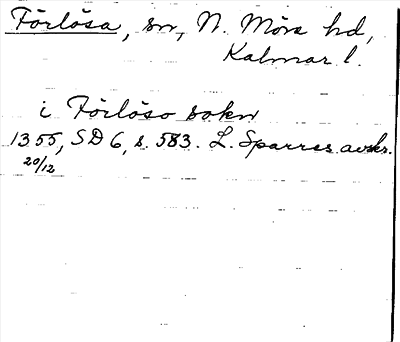 Förlösa, sn, N. Möre hd,
Kalmar l.
i Förlöso sokn
1355, SD 6, s. 583. L. Sparres avskr.
20/12